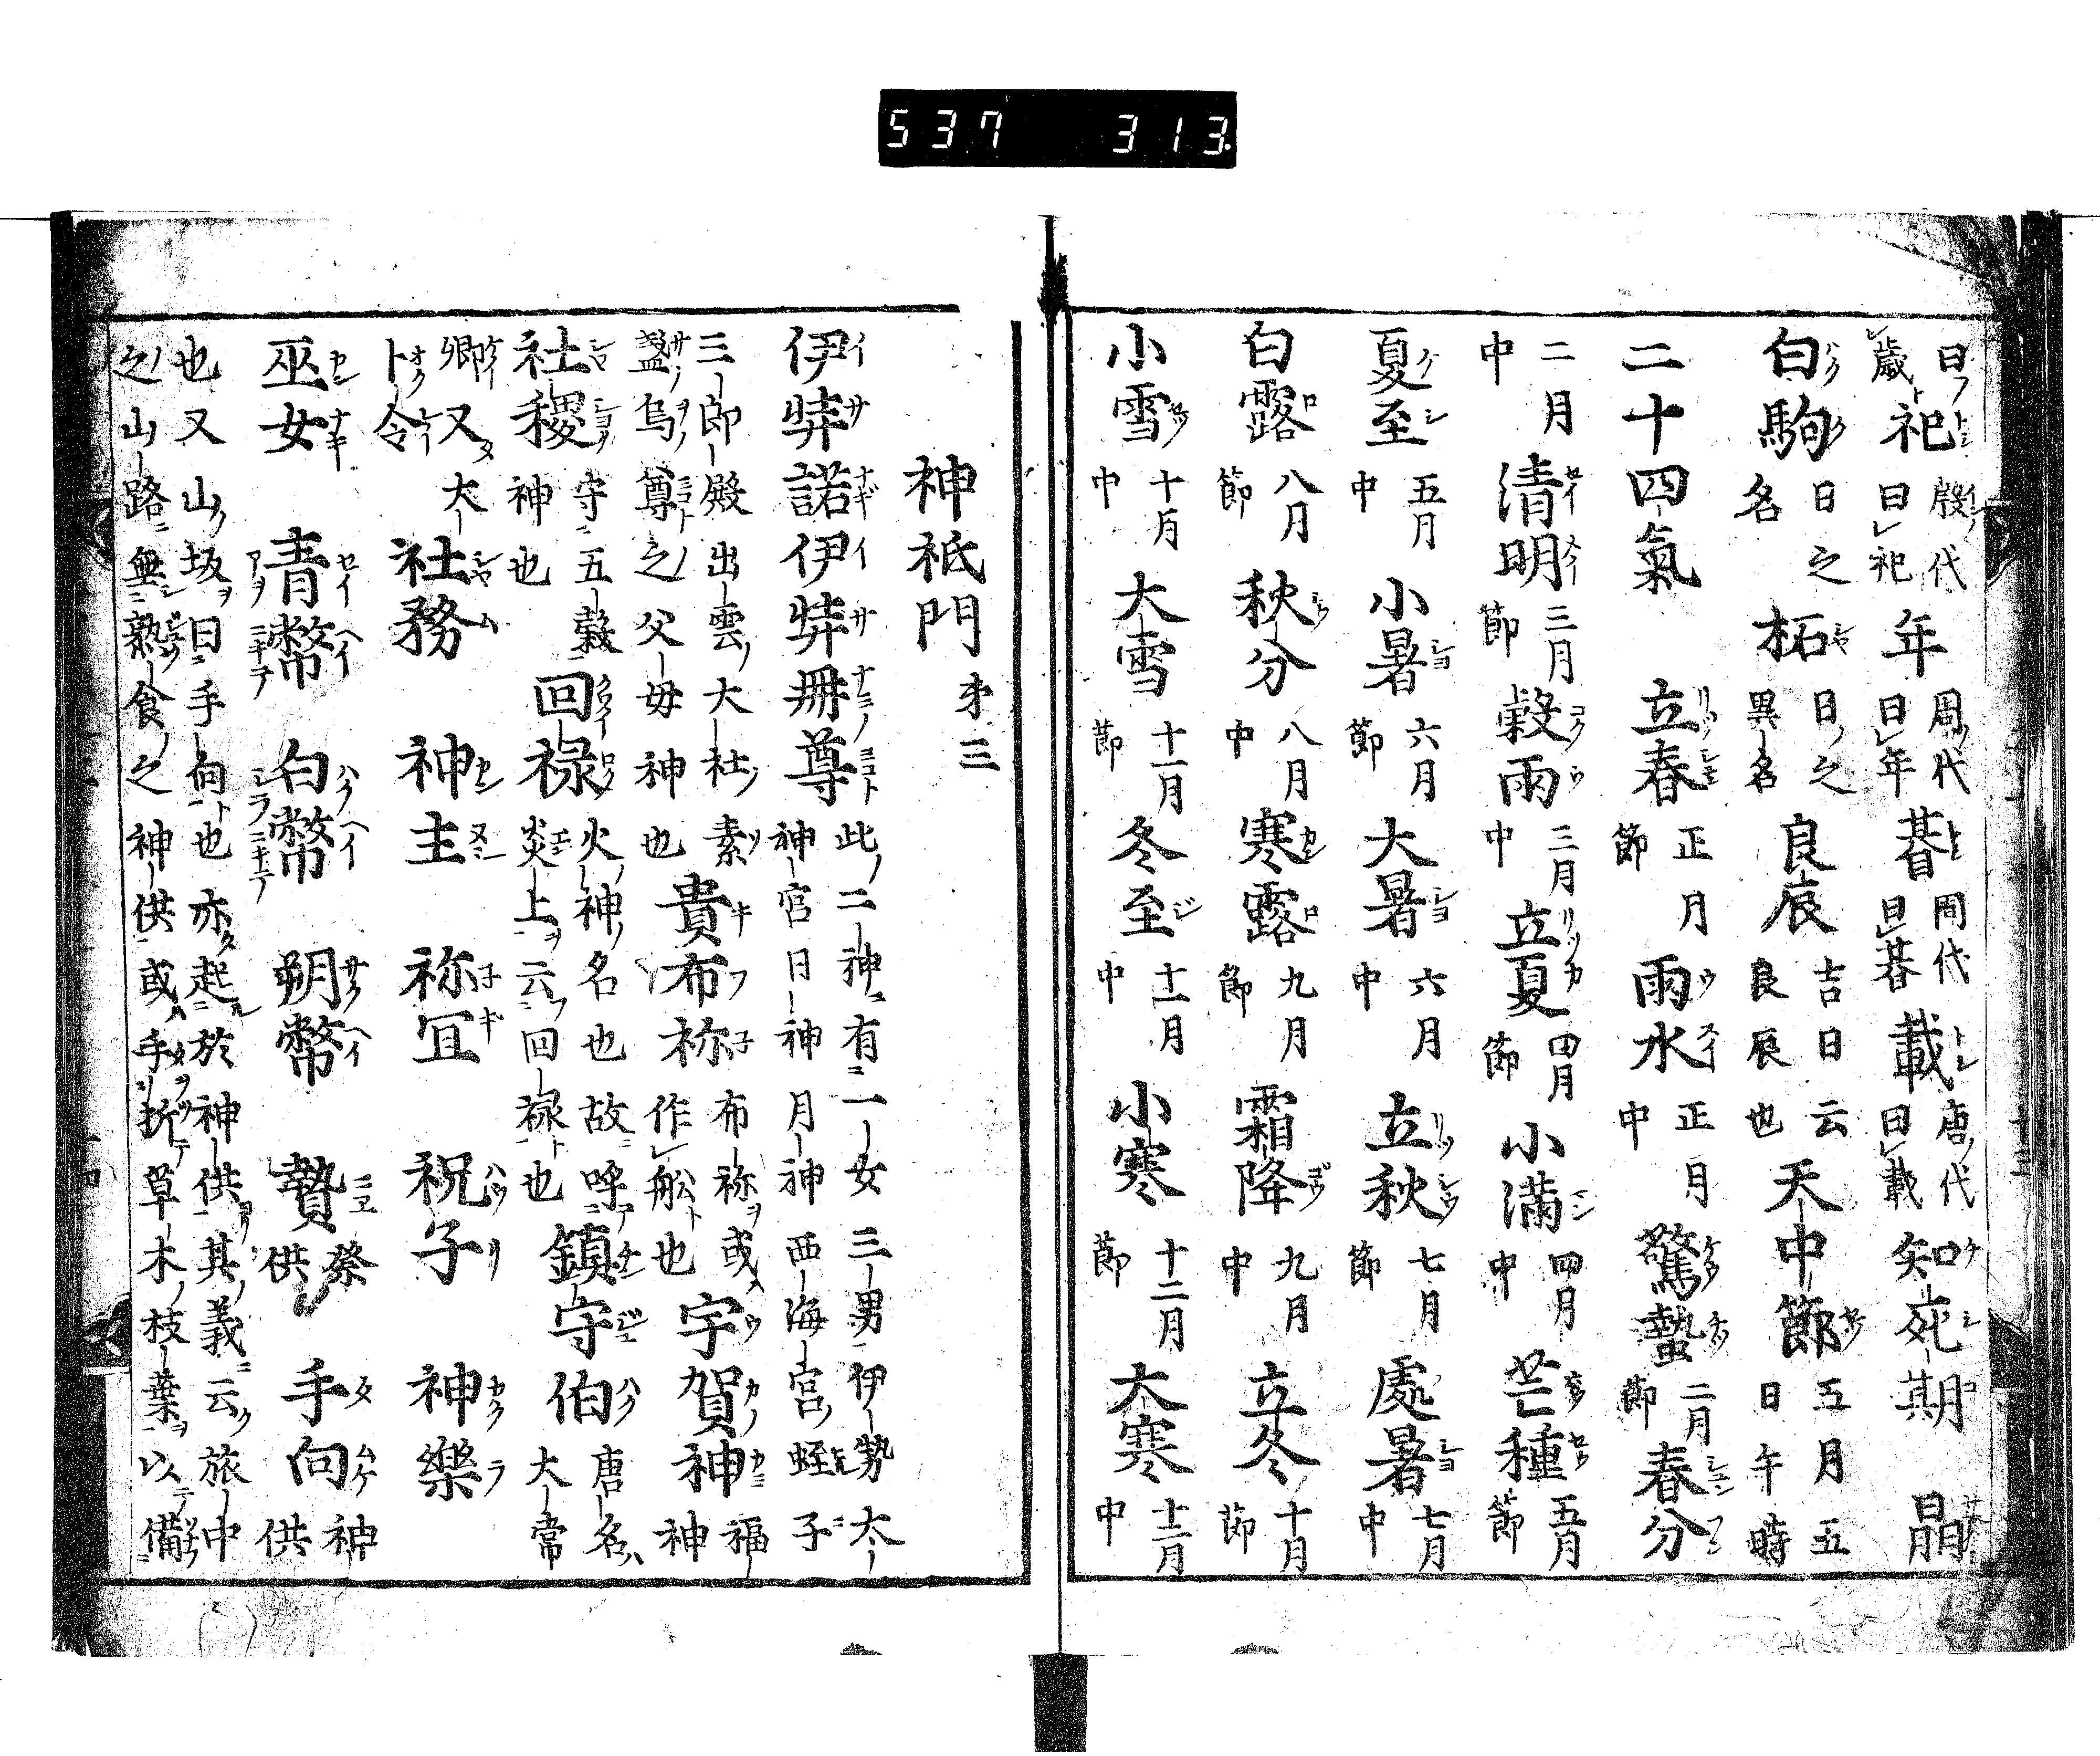 537 313
曰歳祀殷代曰祀年周代曰年朞周代曰朞載唐代曰載知死期晶
白駒日之名柘日之異名良辰吉日良辰云也天中節五月五日午時
二十四氣 立春正月節雨水正月中驚蟄二月節春分
二月中清明三月節穀雨三月中立夏四月節小満四月中芒種五月節
夏至五月中小暑六月節大暑六月中立秋七月節處暑七月中
白露八月節秋分八月中寒露九月節霜降九月中立冬十月節
小雪十月中大雪十一月節冬至十一月中小寒十二月節大寒十二月中
神祇門第三
伊弉諾伊弉冊尊此二神有一女三男伊勢太神宮日神月神西海宮蛭子
三郎殿出雲大社素盞烏尊之父母神也貴布祢布祢或作舩也宇賀神福神
社稷守五穀神也回禄火神名也故呼炎上云回禄也鎮守伯唐名大常
卿又大卜令社務 神主 祢宜 祝子 神樂
巫女 青幣 白幣 朔幣 贄祭供 手向神供
也又山坂曰手向也亦起於神供其義云旅中
之山路無熟食之神供或手折草木枝葉以備